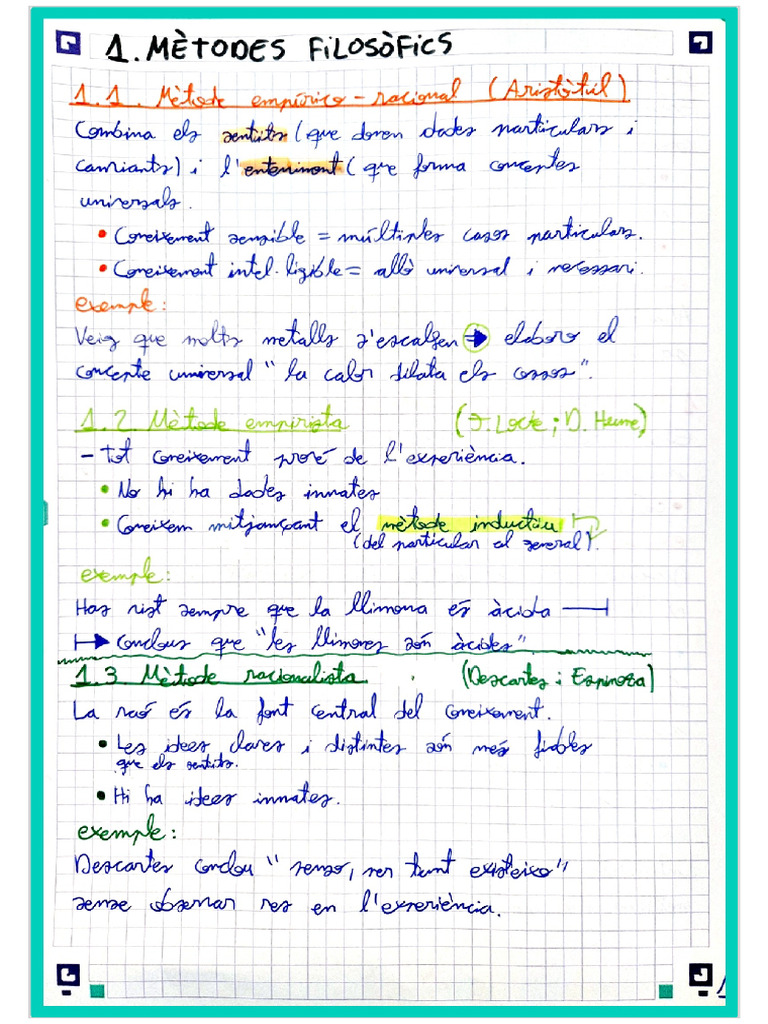 1. MÈTODES FiLOSÒFiCS
1.1. Mètode empírico-racional (Aristòtil)
Combina els sentits (que donen dades particulars i
canviants) i l'enteniment (que forma conceptes
universals.
• Coneixement sensible = múltiples casos particulars.
• Coneixement intel·ligible = allò universal i necessari.
exemple:
Veig que molts metalls s'escalfen → elaboro el
concepte universal "la calor dilata els cossos".
1.2 Mètode empirista (J. Locke; D. Hume)
- Tot coneixement prové de l'experiència.
• No hi ha dades innates
• Coneixem mitjançant el mètode inductiu
(del particular al general).
exemple:
Has vist sempre que la llimona és àcida
→ conclous que "les llimones són àcides".
1.3 Mètode racionalista. (Descartes i Espinoza)
La raó és la font central del coneixement.
• Les idees clares i distintes són més fiables
que els sentits.
• Hi ha idees innates.
exemple:
Descartes conclou "penso, per tant existeixo"
sense observar res en l'experiència.